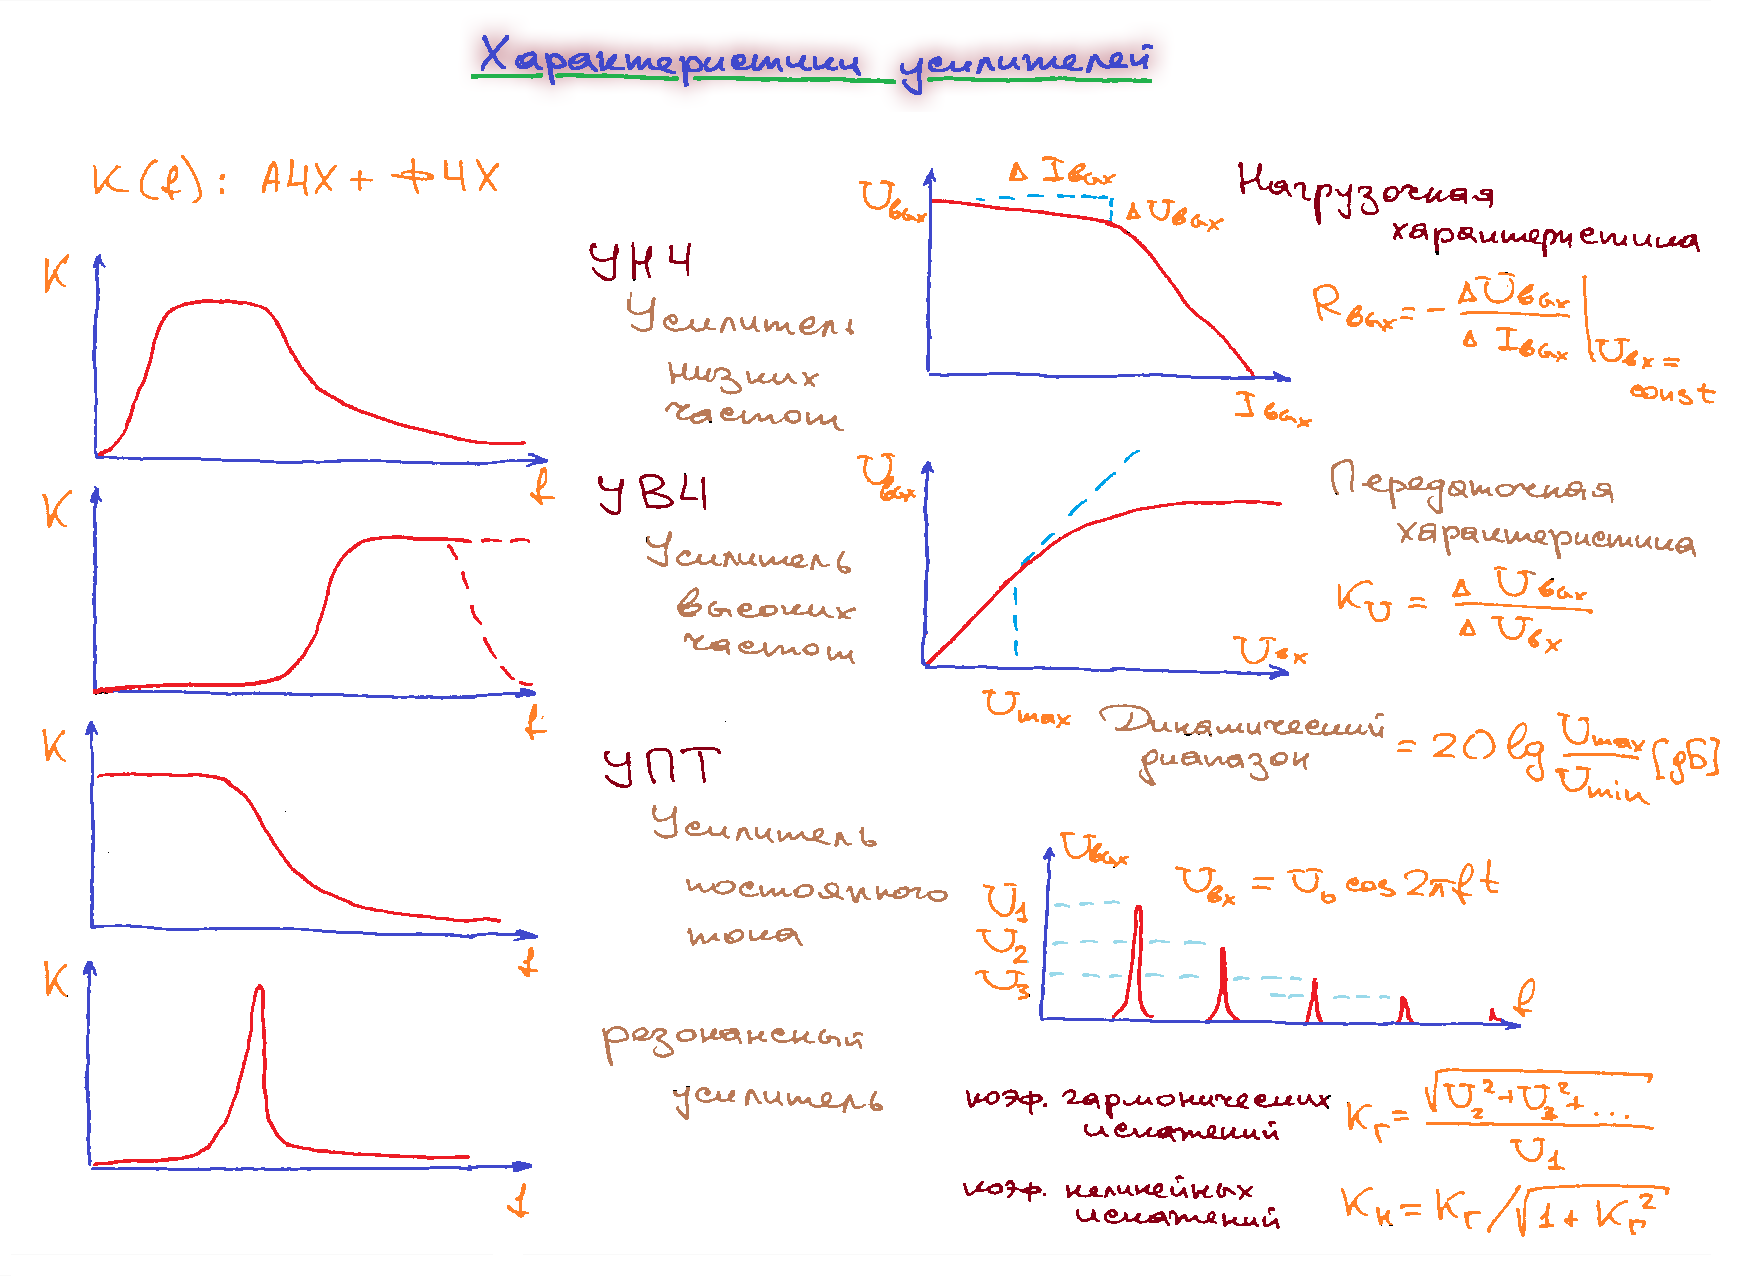 Характеристики усилителей
K(f): АЧХ + ФЧХ
K
УНЧ
Усилитель
низких
частот
f
K
УВЧ
Усилитель
высоких
частот
f
K
УПТ
Усилитель
постоянного
тока
f
K
резонансный
усилитель
f
Uвых
Δ Iвых
Δ Uвых
Iвых
Нагрузочная
характеристика
Rвых = - ΔUвых / Δ Iвых | Uвх = const
Uвых
Uвх
Umax
Передаточная
характеристика
KU = Δ Uвых / Δ Uвх
Динамический
диапазон = 20 lg Umax / Umin [дБ]
Uвых
Uвх = U0 cos 2πft
U1
U2
U3
f
коэф. гармонических
искажений
Kг = √(U2² + U3² + ...) / U1
коэф. нелинейных
искажений
Kн = Kг / √(1 + Kг²)